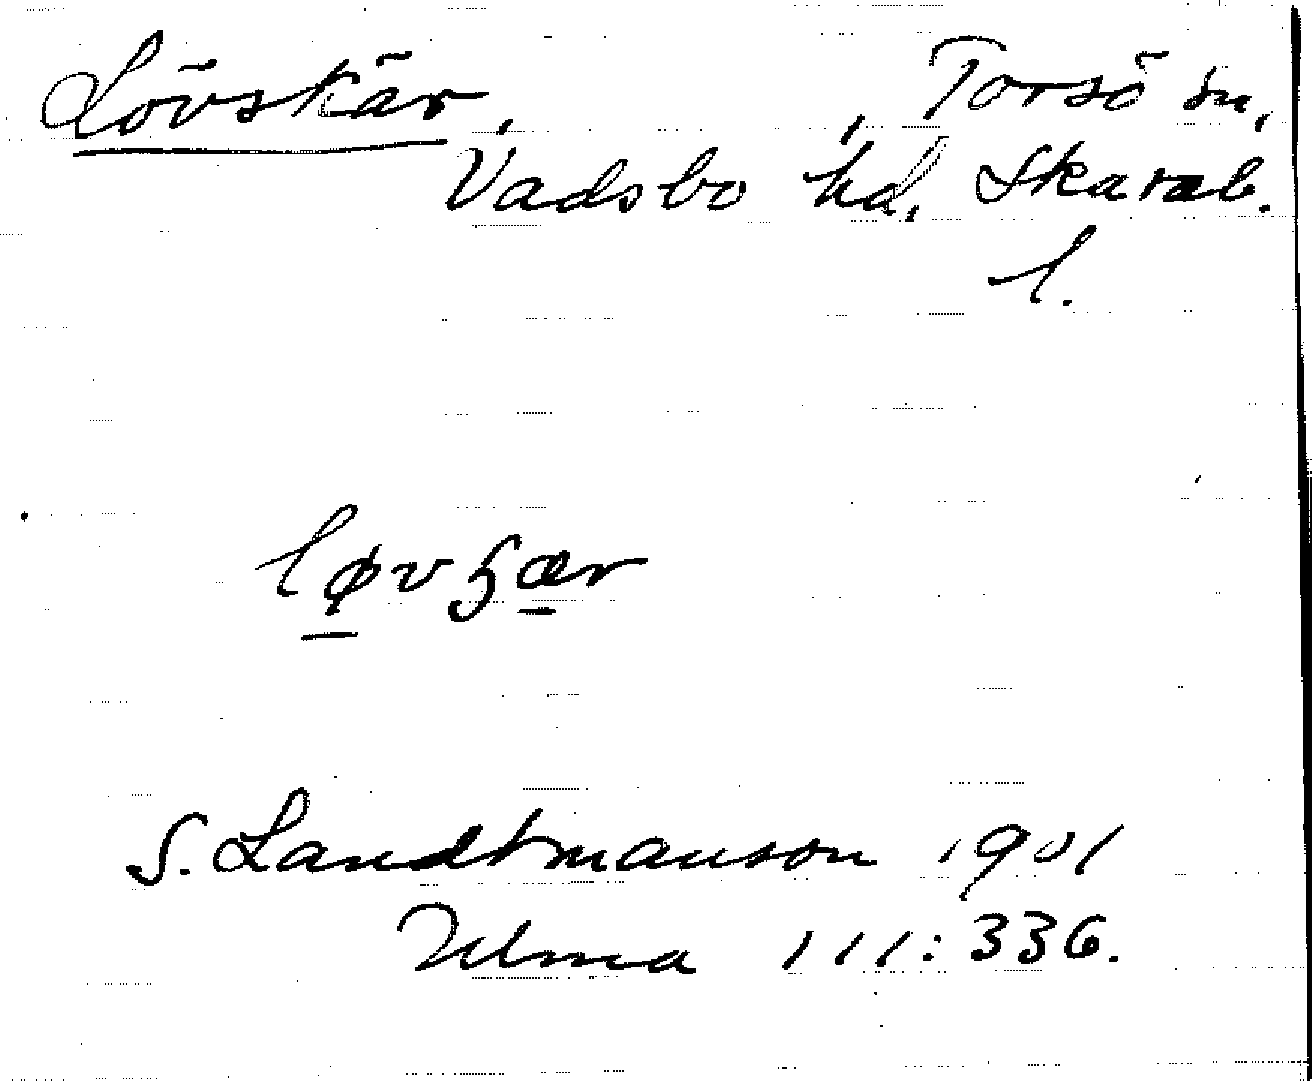 Lövskär, Torsö sn,
Vadsbo hd, Skarab.
l.
løvʂær
S. Landtmanson 1901
Ulma 111:336.